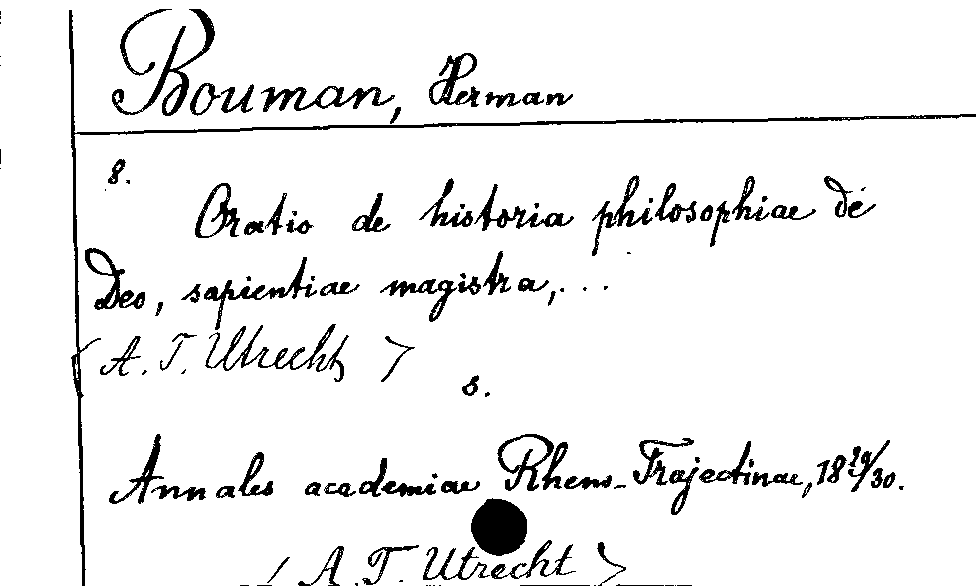 Bouman, Herman
8.
Oratio de historia philosophiae de
Deo, sapientiae magistra,...
< A. T. Utrecht >
s.
Annales academiae Rheno-Trajectinae, 1829/30.
< A. T. Utrecht >